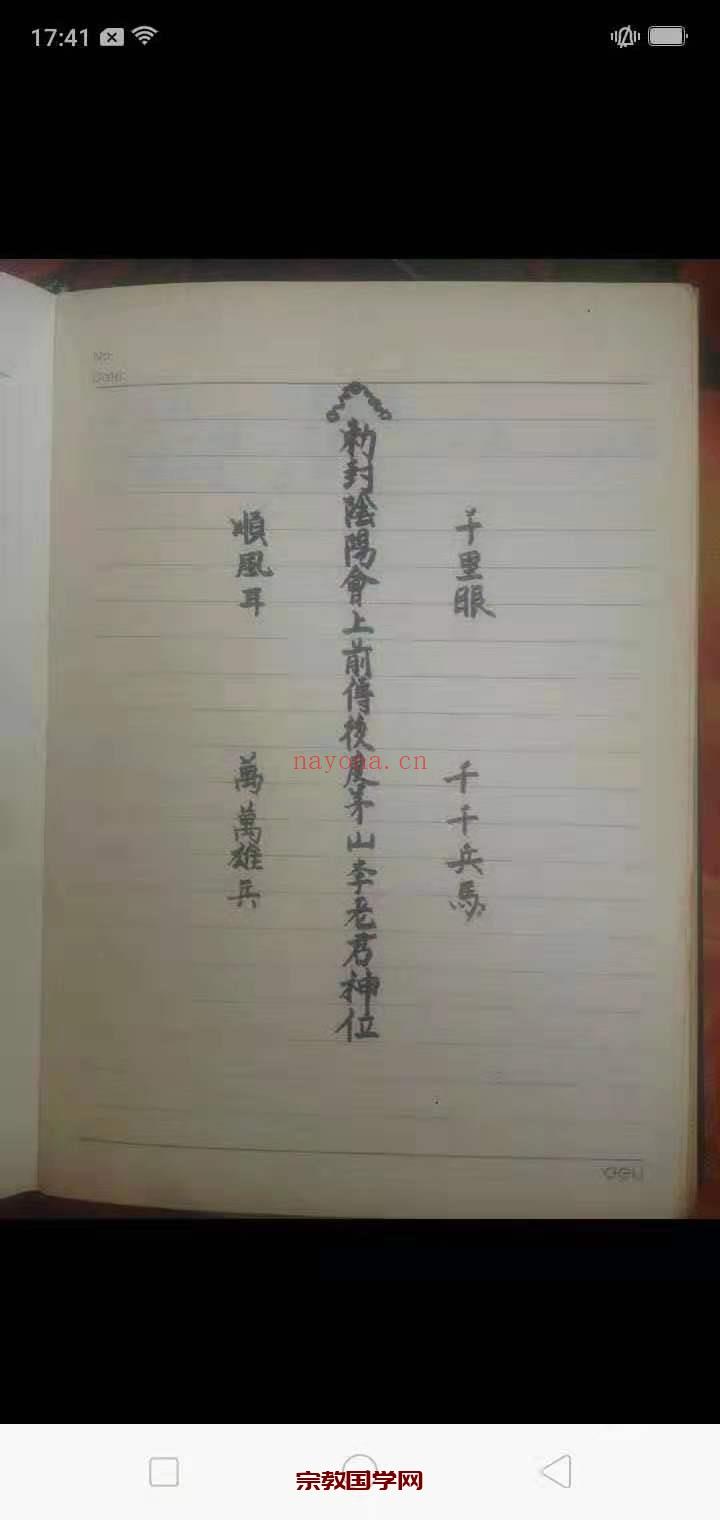 17:41
No:
Date:
千里眼
千千兵馬
勅封陰陽會上前傳後度茅山李老君神位
順風耳
萬萬雄兵
nayona.cn
deli
宗教国学网